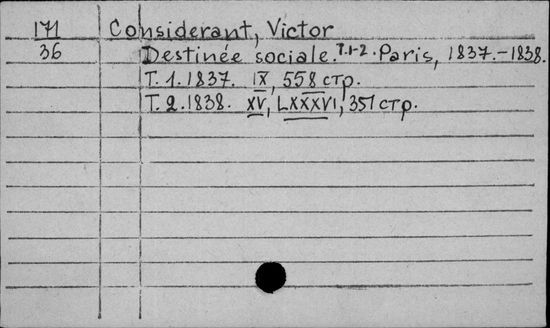 171 Considerant, Victor
36 Destinée sociale. T.1-2. Paris, 1837.-1838.
T. 1. 1837. IX, 558 стр.
T. 2. 1838. XV, LXXXVI, 351 стр.